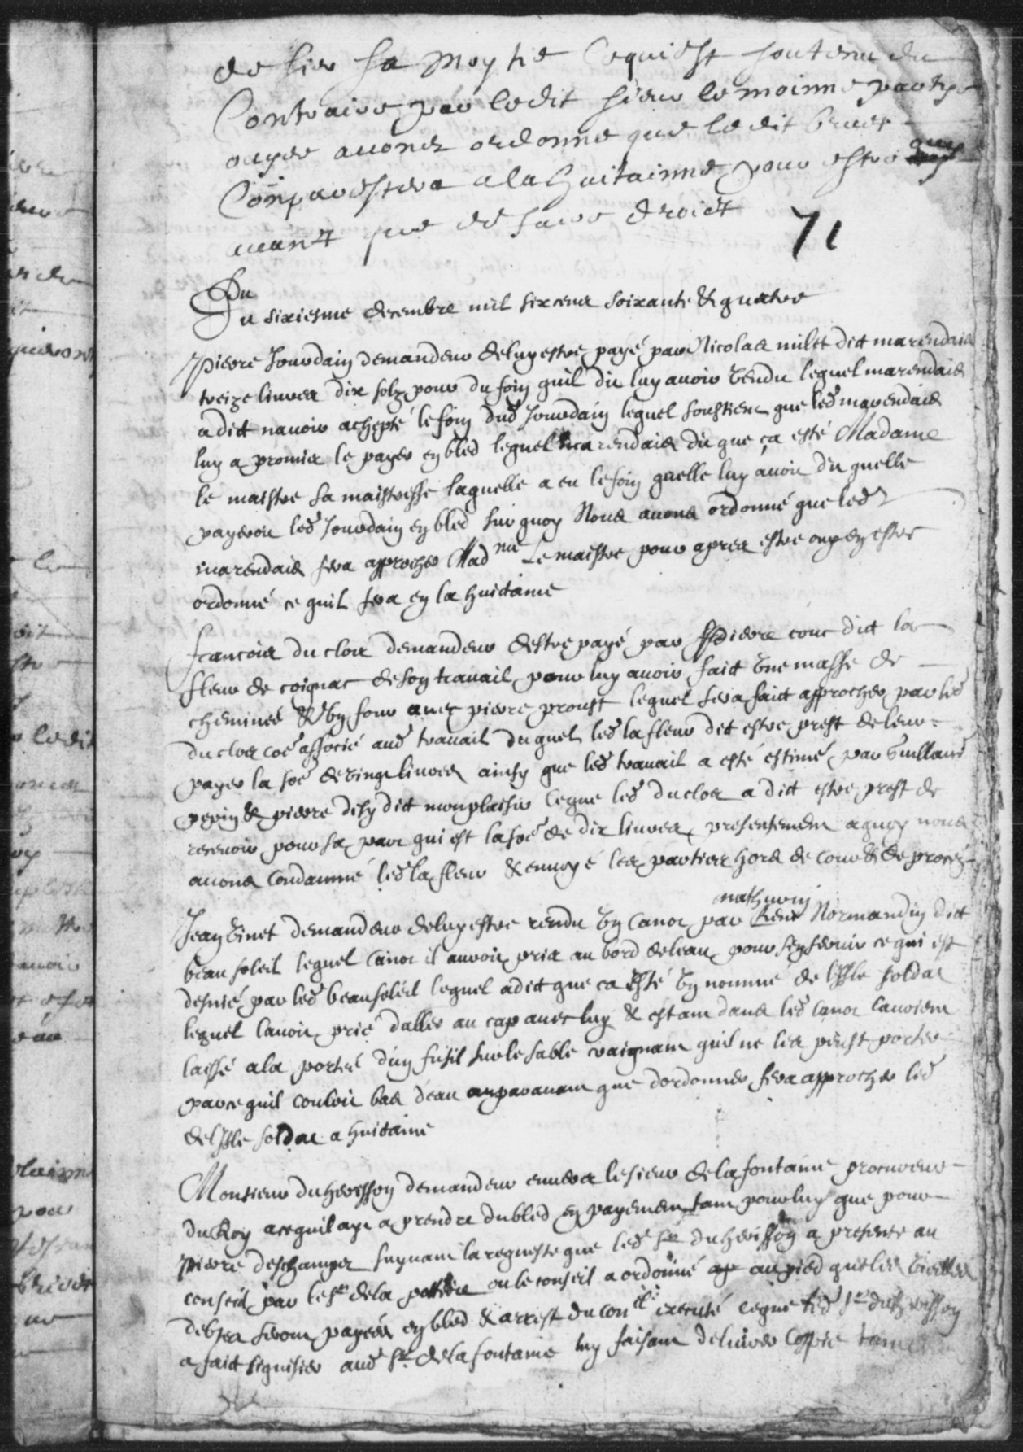 de lier sa moytié Cequi est soutenu du
Contraire par ledit sieur le moinne partye
ouyes avonez ordonne que ledit
Comparestera a la huitainne pour estre ouy
avant que de faire droict
71
Du
Du sixiesme decembre mil six cens soixante & quatre
Pierre Jourdain demandeur deluy estre payé par Nicolas milet dit marendais
treize livres dix solz pour du foin quil dit luy avoir vendu lequel marendais
a dict navoir achepté le foin dud Jourdain lequel soustient que led marendais
luy a promis le payer en bled lequel marendais dit que ça esté Madame
le maistre sa maistresse laquelle a eu le foin quelle luy avoit dit quelle
payeroit led Jourdain en bled sur quoy Nous avons ordonné que led
marendais fera approcher Mad me Le maistre pour apres estre ouy en estre
ordonné ce quil sera en la huictaine
francois du clos demandeur destre payé par pierre couc dict la
fleur de coignac de son travail pour luy avoir faict une masse de
cheminée & un four avec pierre proust lequel sera faict approcher par led
duclos coe associé aud travail duquel led la fleur dit estre prest de leur
payer la soe de vingt livres ainsy que led travail a esté estimé par Guillaume
pepin & pierre disy dict monplaisir ceque led duclos a dict estre prest de
recevoir pour sa part qui est la soe de dix livres presentement aquoy nous
avons condamné led la fleur & envoyé les parties hors de cour & de procès
mathurin
Jean vinet demandeur deluy estre rendu un canot par Normandin dict
beau soleil lequel canot il auroit pris au bord deleau pour sen servir ce qui est
desnié par led beausoleil lequel a dict que ca esté un nommé de lisle soldat
lequel lavoit prié daller au cap avec luy & estant dans led canot lavoient
laissé a la portée dun fusil sur le sable craignant quil ne les peust porter
parce quil couloit bas deau auparavant que dordonner fera approcher led
delisle soldat a huictaine
Monsieur du herisson demandeur envers le sieur de la fontaine procureur
du Roy acequil aye a prendre du bled en payement tant pour luy que pour
pierre deschamps suyvant la requeste que led Sr du herisson a presenté au
conseil par le sr de la poterie ou le conseil a ordonné au pied que les vieilles
debtes seront payées en bled & arrest du conel executé ceque led Sr du herisson
a faict signifier aud Sr de la fontaine luy faisant delivrer Coppie